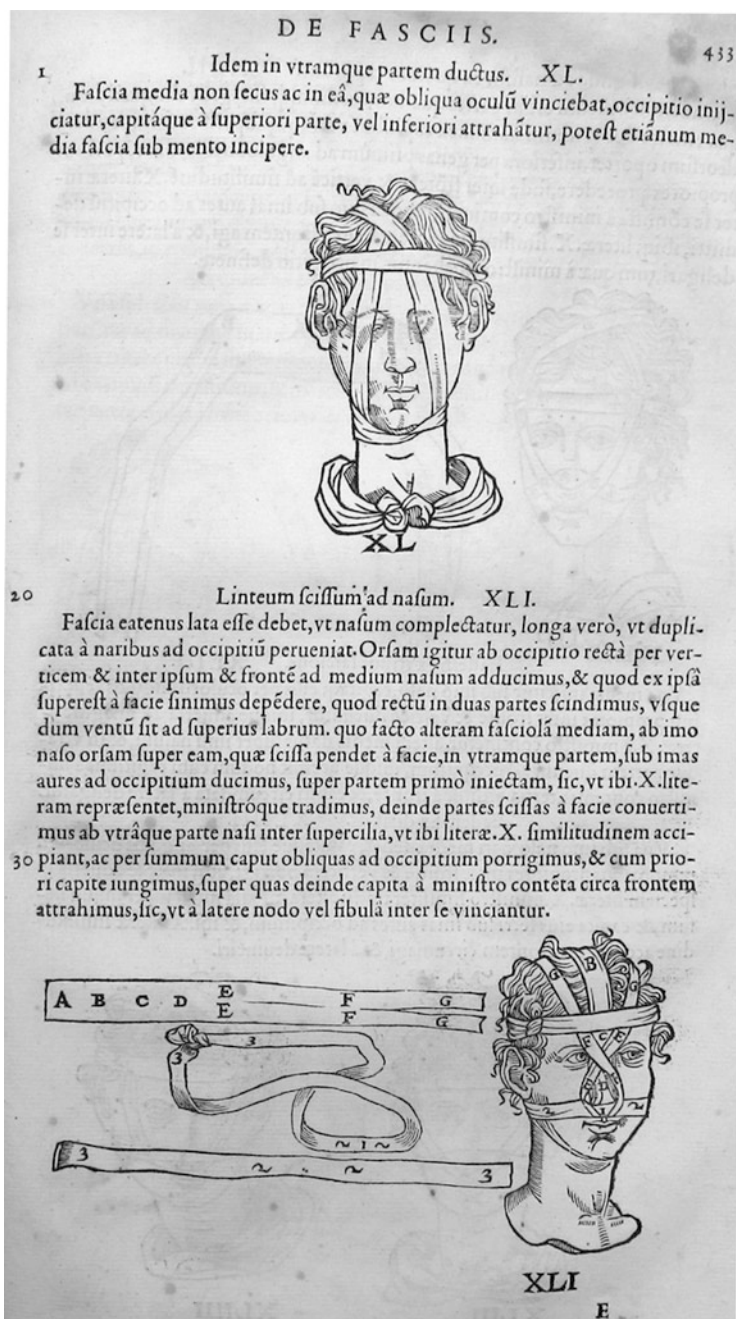 DE FASCIIS.
433
1 Idem in vtramque partem ductus. XL.
Faſcia media non ſecus ac in eâ,quæ obliqua oculū vinciebat,occipitio inij-
ciatur,capitáque à ſuperiori parte, vel inferiori attrahātur, poteſt etiānum me-
dia faſcia ſub mento incipere.
XL
20 Linteum ſciſſum ad naſum. XLI.
Faſcia eatenus lata eſſe debet,vt naſum complectatur, longa verò, vt dupli-
cata à naribus ad occipitiū perueniat. Orſam igitur ab occipitio rectà per ver-
ticem & inter ipſum & frontē ad medium naſum adducimus,& quod ex ipſâ
ſupereſt à facie ſinimus depēdere, quod rectū in duas partes ſcindimus, vſque
dum ventū ſit ad ſuperius labrum. quo facto alteram faſciolā mediam, ab imo
naſo orſam ſuper eam,quæ ſciſſa pendet à facie,in vtramque partem,ſub imas
aures ad occipitium ducimus, ſuper partem primò iniectam, ſic,vt ibi.X.lite-
ram repræſentet,miniſtróque tradimus, deinde partes ſciſſas à facie conuerti-
mus ab vtrâque parte naſi inter ſupercilia,vt ibi literæ.X. ſimilitudinem acci-
30 piant,ac per ſummum caput obliquas ad occipitium porrigimus,& cum prio-
ri capite iungimus,ſuper quas deinde capita à miniſtro contēta circa frontem
attrahimus,ſic,vt à latere nodo vel fibulâ inter ſe vinciantur.
A B C D E F G
E F G
3 3
~ 1 ~
3 2 2 3
G B G
F C E
D
2 1 2
XLI
E